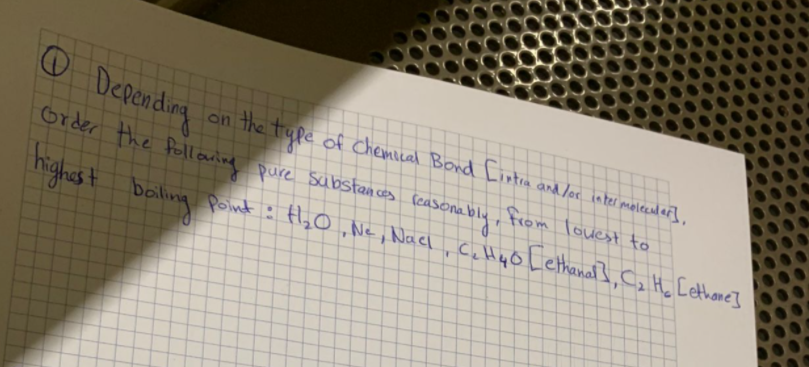 ① Depending on the type of Chemical Bond [intra and/or intermolecular],
order the following pure substances reasonably, from lowest to
highest boiling point : H₂O , Ne , Nacl , C₂H₄O [ethanal], C₂H₆ [ethane]